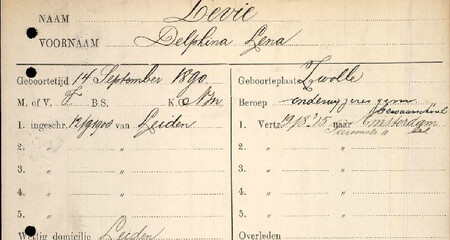 NAAM Levie
VOORNAAM Delphina Lena
Geboortetijd 14 September 1890
Geboorteplaats Zwolle
M. of V. V. B.S. K. N.
Beroep onderwijzeres gym
bewaarschool
1. ingeschr. 12/9 1908 van Leiden
1. Vertr. 19/8 '15 naar Amsterdam
2. " "
2. " "
3. " "
3. " "
4. " "
4. " "
5. " "
5. " "
Wettig domicilie Leiden
Overleden